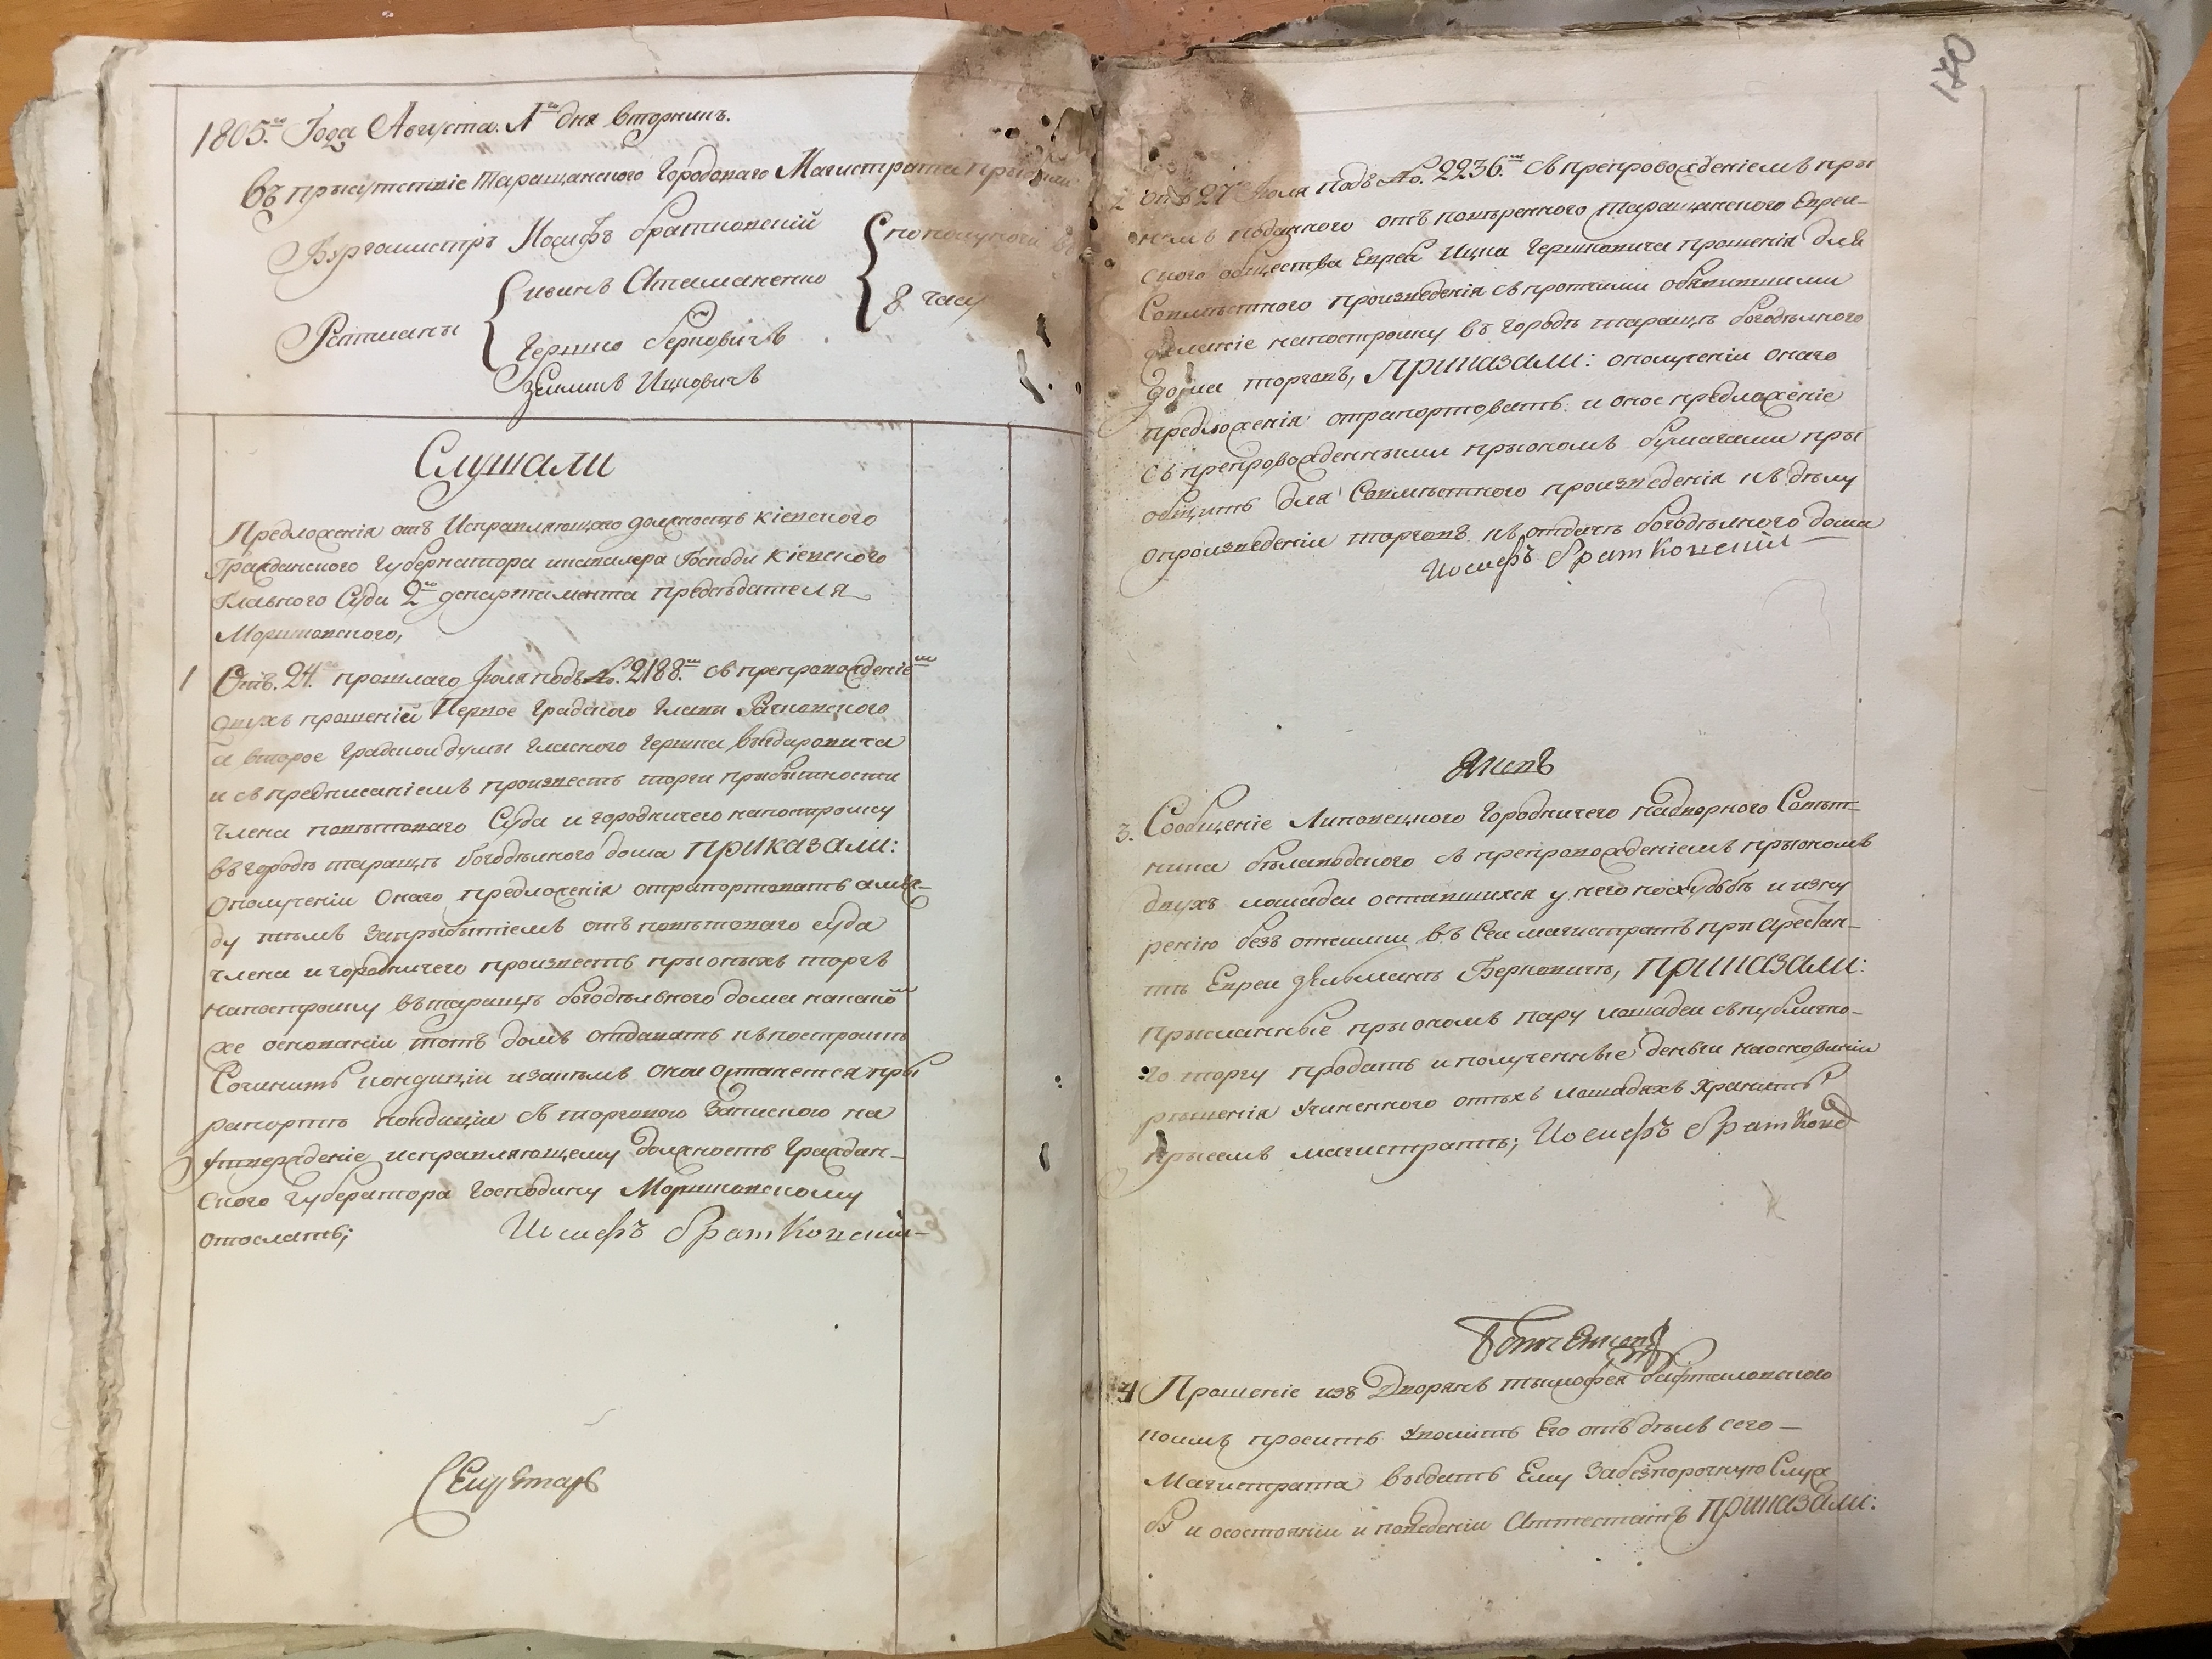 1805.го Года Августа. 1го дня вторникъ.
Въ присутствіе Таращанского Городового Магистрата прибыли
Бургомистръ Иосифъ Братковскій
пополуночи въ
Ратманы
иванъ Атаманенко
8 часу
Гершко Берковичъ
Зелманъ Ицковичъ
Слушали
Предложенія отъ Исправляющаго должность кіевского
Гражданского Губернатора Господи кіевского
Главного Суда 2го департамента председателя
Моршковского,
1 Отъ. 24.го прошлаго Июля подъ №. 2188.мъ съ препровожденіемъ
двухъ прошеній Первое градского Главы Рачковского
и второе градской думы гласного Гершка
и съ предписаніемъ произвесть торги прыбытности
члена поветоваго Суда и городничего напостройку
въ городѣ таращѣ богодѣлного дома приказали:
ополученіи Онаго предложенія отрапортовать амеж-
ду тѣмъ запрыбытіемъ отъ поветоваго суда
члена и городничего произвесть прыоныхъ торгъ
напостройку вътаращѣ богодѣльного дома накакомъ
же основаніи тотъ домъ отдавать къпостройкѣ
Сочинить кондиціи изакѣмъ оной Останется пры
рапортѣ кондиціи съ торговою Запискою на
утвержденіе исправляющему должность Граждан-
ского Губератора господину Моршковскому
отослать; Иосифъ Братковскій
Секретарь
140
2 отъ 27го Июля подъ №. 2236.мъ съ препровожденіемъ пры
немъ поданного отъ поверенного таращанского Еврей-
ского общества Еврея Ицка Гершковича прошенія для
Совместного произведенія съ протчими обявившими
желаніе напостройку въ городѣ таращѣ богодѣлного
дома торговъ, Приказали: ополученіи онаго
предложенія отрапортовать и оное предложеніе
съ препровожденными прыономъ бумагами пры
общить для Совместного произведенія къ дѣлу
опроизведеніи торговъ къ отдачѣ богодѣлного дома
Иосифъ Братковскій
Яковъ
3. Сообщеніе Липовецкого Городничего надворного Совет-
ника съ препровожденіемъ прыономъ
двухъ лошадей оставшихся у него похудобѣ и изну
ренію безъ отсилки въ сей магистратъ при арестан-
тѣ Евреи Зельманѣ Берковичѣ, приказали:
прысланные прыономъ пару лошадей съпублично-
го торгу продать и полученные деньги наосновании
рѣшенія учиненного отѣхъ лошадяхъ хранить
прысемъ магистратѣ; Иосифъ Братковс
4 Прошеніе изъ Дворянъ тымофея
коимъ просить уволить Его отъ дѣлъ сего
Магистрата выдать Ему Забезпорочную Служ
бу и осостояніи и поведеніи Аттестатъ приказали: